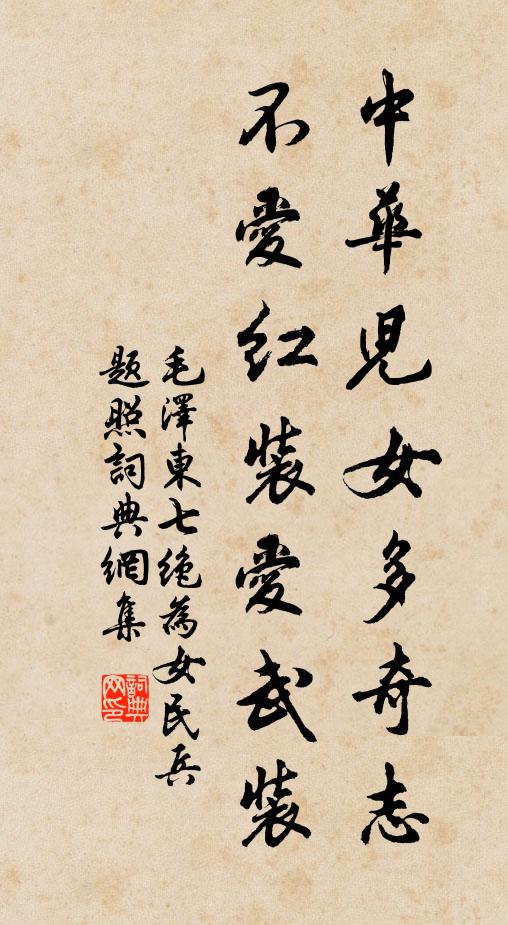 中華児女多奇志
不愛紅裝愛武裝
毛澤東七绝為女民兵
题照詞典網集
詞典网印